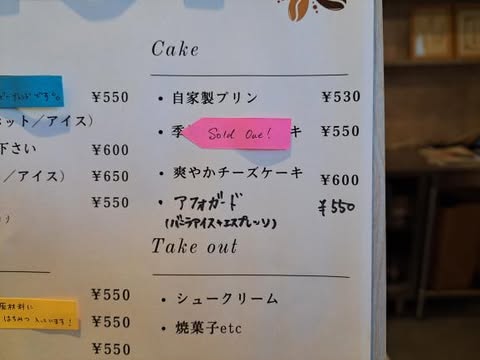 Cake
・自家製プリン ¥530
・季 Sold Out! キ ¥550
・爽やかチーズケーキ ¥600
・アフォガード ¥550
(バニラアイス+エスプレッソ)
Take out
・シュークリーム
・焼菓子etc
です% ¥550
ット／アイス)
下さい ¥600
／アイス) ¥650
¥550
)
¥550
原材料に
はちみつ入っています! ¥550
¥550